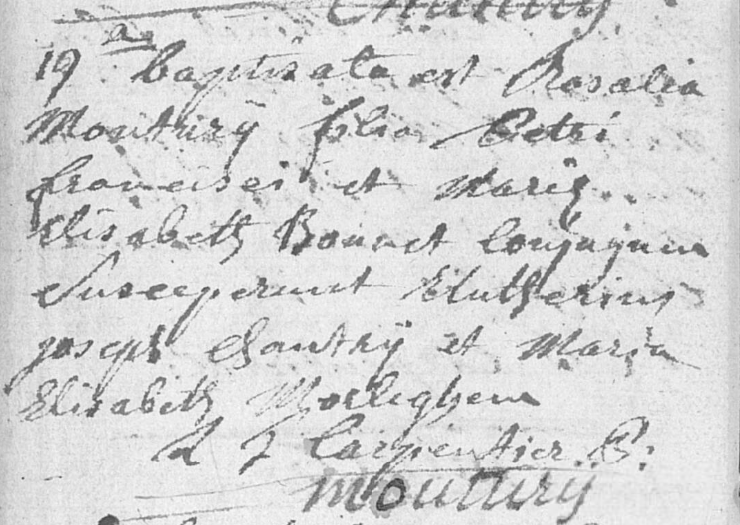 19ª baptisata est Rosalia
Moutturÿ filia Petri
francisci et Mariæ
Elisabeth Bonnet Conjugum
Susceperunt Eleutherius
joseph Chantrÿ et Maria
Elisabeth Morleghem
L J Carpentier P:
moutturÿ